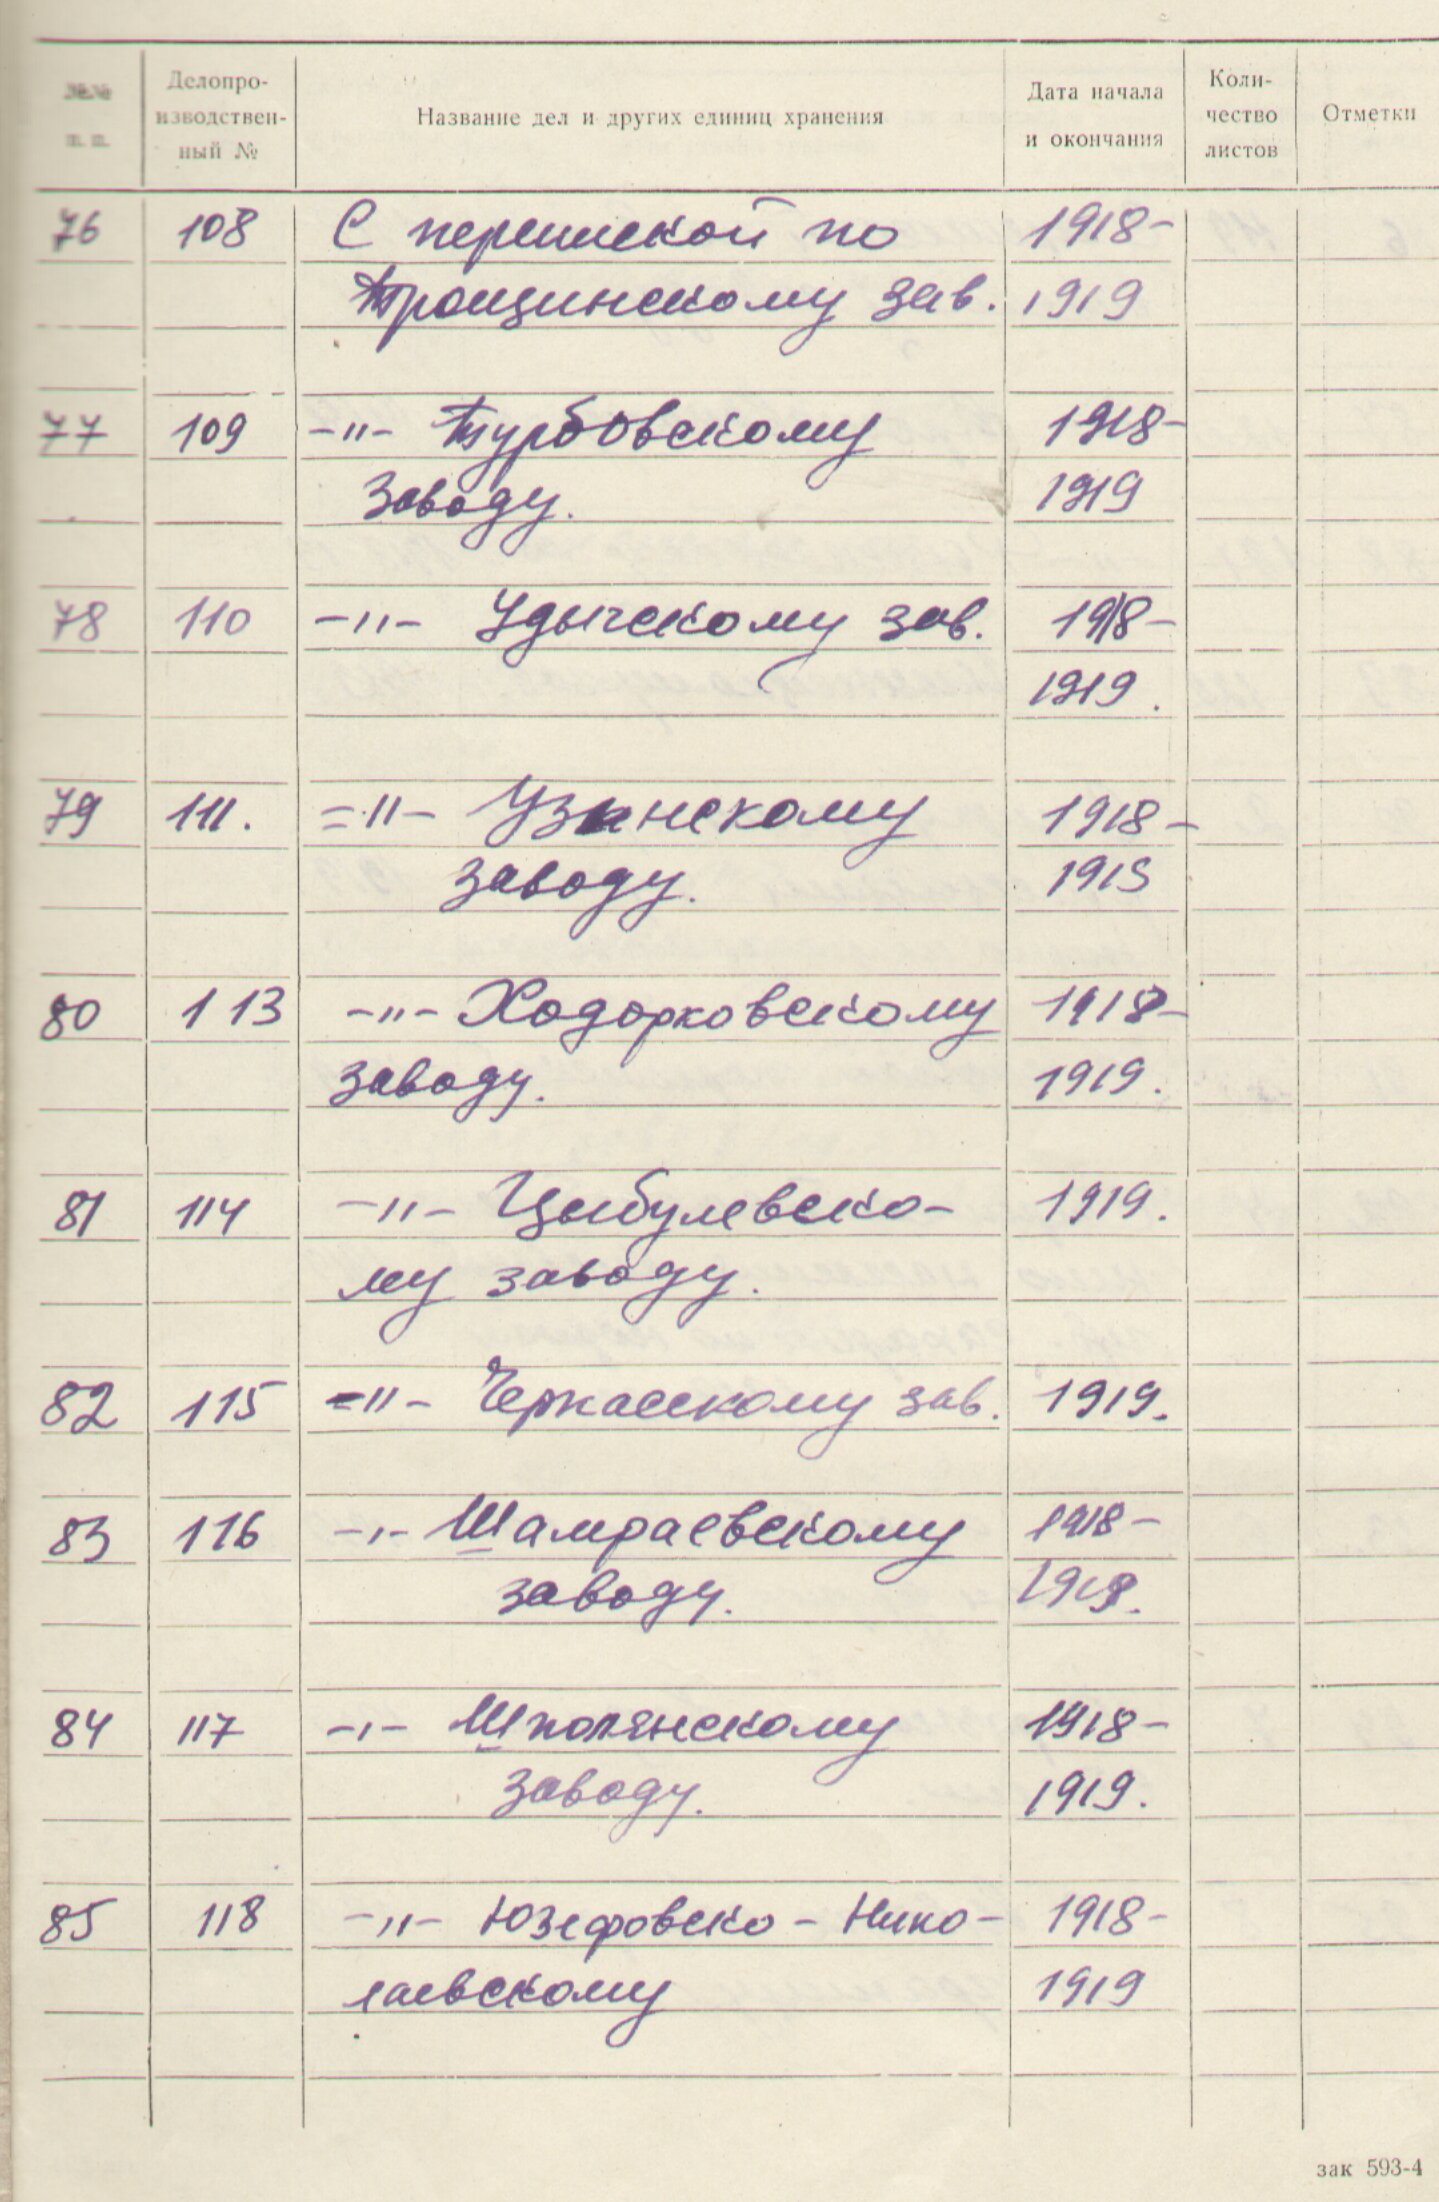 №№ п. п. Делопроизводственный № Название дел и других единиц хранения Дата начала и окончания Количество листов Отметки
76 108 С перепиской по 1918-
Трощинскому зав. 1919
77 109 -"- Турбовскому 1918-
заводу. 1919
78 110 -"- Удычскому зав. 1918-
1919.
79 111. -"- Узинскому 1918-
заводу. 1919
80 113 -"- Ходорковскому 1918-
заводу. 1919.
81 114 -"- Цыбулевско- 1919.
му заводу.
82 115 -"- Черкасскому зав. 1919.
83 116 -"- Шамраевскому 1918-
заводу. 1919.
84 117 -"- Шполянскому 1918-
заводу. 1919.
85 118 -"- Юзефовско-Нико- 1918-
лаевскому 1919
зак 593-4